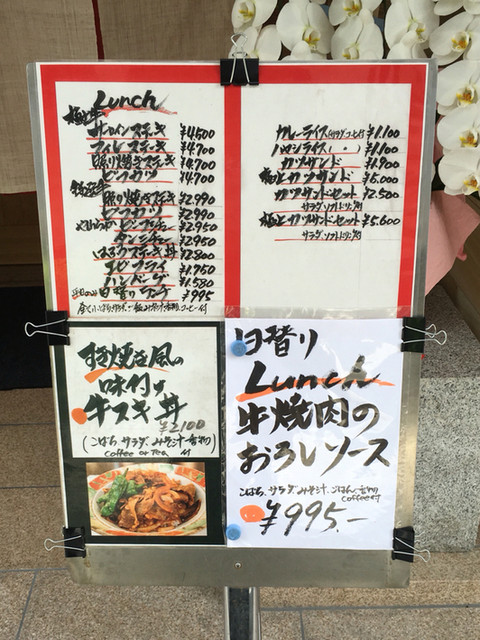 Lunch
極上牛
サーロインステーキ ¥4,500
フィレステーキ ¥4,700
照り焼きステーキ ¥4,700
ビフカツ ¥4,700
特選牛
照り焼きステーキ ¥2,990
ビフカツ ¥2,990
ビーフシチュー ¥2950
タンシチュー ¥2950
はみうちステーキ丼 ¥2,800
エビフライ ¥1,750
ハンバーグ ¥1,580
平日のみ 日替りランチ ¥995
カレーライス(サラダ、コーヒー付) ¥1,100
ハヤシライス( 〃 ) ¥1,100
カツサンド ¥1,900
極上カツサンド ¥5,000
カツサンドセット ¥2,500
サラダ、ソフトドリンク付
極上カツサンドセット ¥5,600
サラダ、ソフトドリンク付
すき焼き風の
味付け
牛スキ丼
¥2100
(こばち、サラダ、みそ汁、香物)
coffee or Tea 付
日替り
Lunch
牛焼肉の
おろしソース
こばち、サラダ、みそ汁、ごはん、香物
coffee付
¥995.-